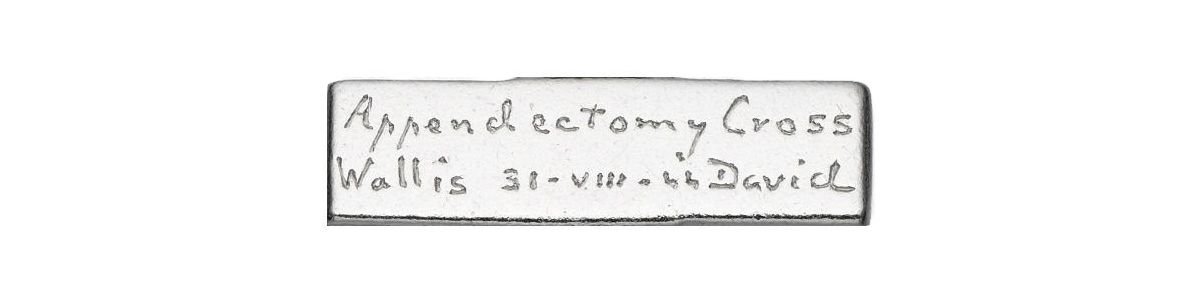 Appendectomy Cross
Wallis 31-VIII-44 David